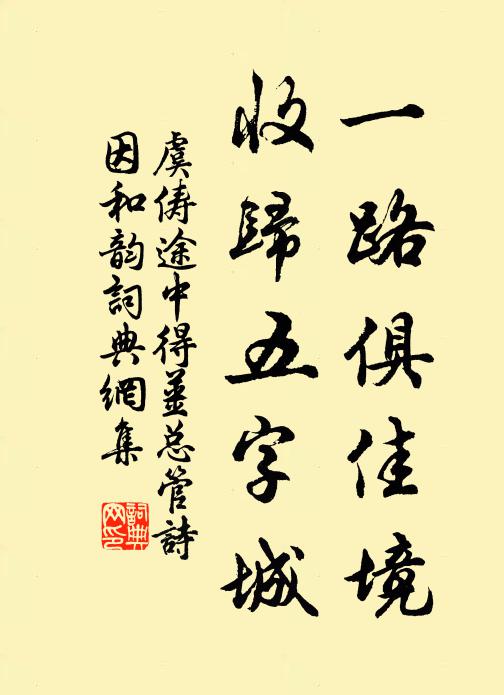 一路俱佳境
收歸五字城
虞俦途中得薑总管詩
因和韵詞典網集
詞典
网印